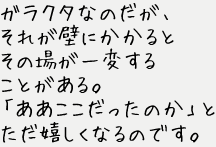 ガラクタなのだが、
それが壁にかかると
その場が一変する
ことがある。
「ああここだったのか」と
ただ嬉しくなるのです。